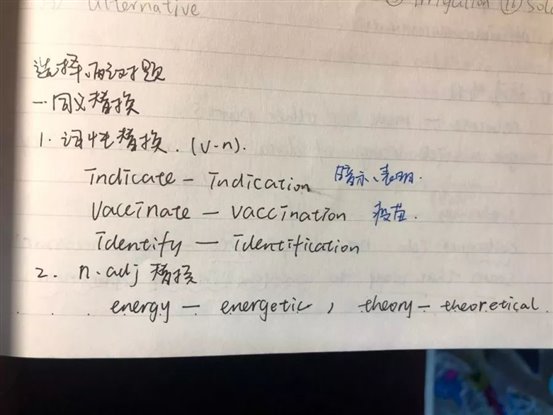 alternative ② Irrigation ⑪
选择、配对题
一.同义替换
1. 词性替换. (v-n).
indicate — indication 暗示、表明.
vaccinate — vaccination 疫苗.
identify — identification
2. n.adj 替换
energy — energetic , theory — theoretical.